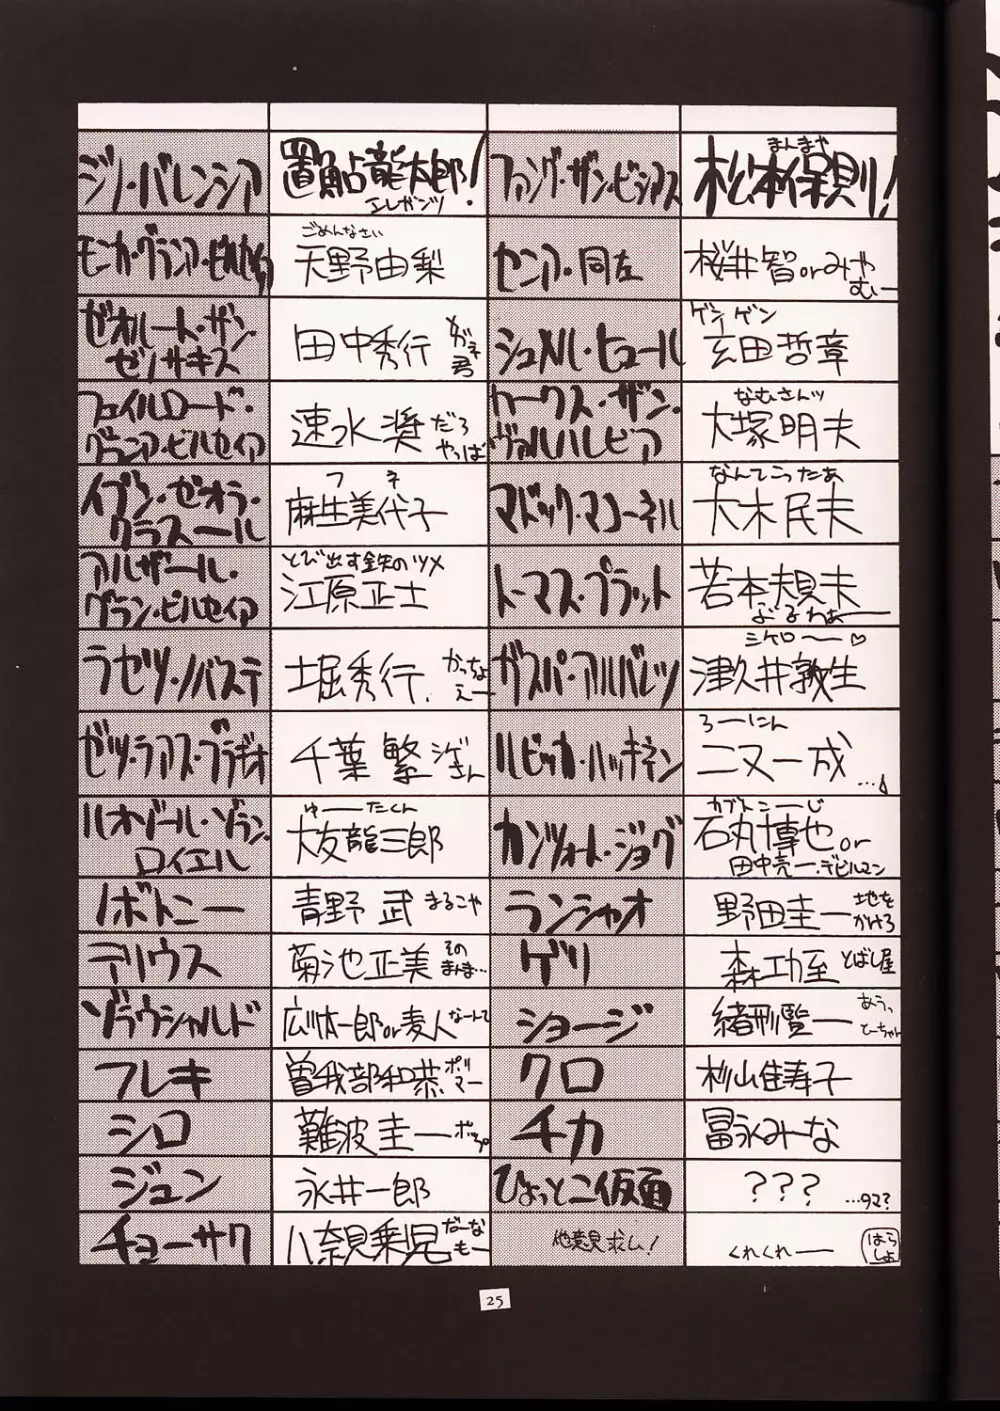 ジノ・バレンシア
置鮎龍太郎!
エレガンツ
ファング・ザン・ビシアス
まんまや
松本保典!
モニカ・グランア・ビルセイア
ごめんなさい
天野由梨
セニア・同左
桜井智orみや
むー
ゼオルート・ザン・
ゼノサキス
田中秀行
メガネ
君
シュメル・ヒュール
ゲンゲン
玄田哲章
フェイルロード・
グランア・ビルセイア
速水奨
だろ
やっぱ
カークス・ザン・
ヴァルハレビア
なむさんッ
大塚明夫
イブン・ゼオラ・
クラスール
フネ
麻生美代子
マドック・マコーネル
なんてこったあ
大木民夫
アルザール・
グラン・ビルセイア
とび出す鉄のツメ
江原正士
トーマス・プラット
若本規夫
ぶるわぁーー
ラセツ・ノバステ
堀秀行.
かっちょ
えー
ガスパ・アルバレツ
シケロ〜〜♡
津久井教生
ゼツ・ラアス・ブラギオ
千葉繁
シゲ
さん
ルビッカ・ハッキネン
ろーにん
二又一成
ハオドール・ゾラン・
ロイエル
ゆーーたくん
大友龍三郎
カンツォート・ジョグ
カブトこーじ
石丸博也or
田中亮一・デビルマン
ノボトニー
青野武
まるこや
ランシャオ
野田圭一
地を
かけろ
テリウス
菊池正美
その
まんま…
ゲリ
森功至
とばし屋
ゾラウシャルド
広中雅一郎or麦人
なーんて
ショージ
緒方賢一
あうっ
とーちゃん
フレキ
曽我部和恭
ボボ
マー
クロ
杉山佳寿子
シロ
難波圭一
ポップ
チカ
冨永みーな
ジュン
永井一郎
ひょっとこ仮面
???
…タマ?
チョーサク
八奈見乗児
だーな
もー
他意見求ム!
くれくれーー
はら
しょ
25